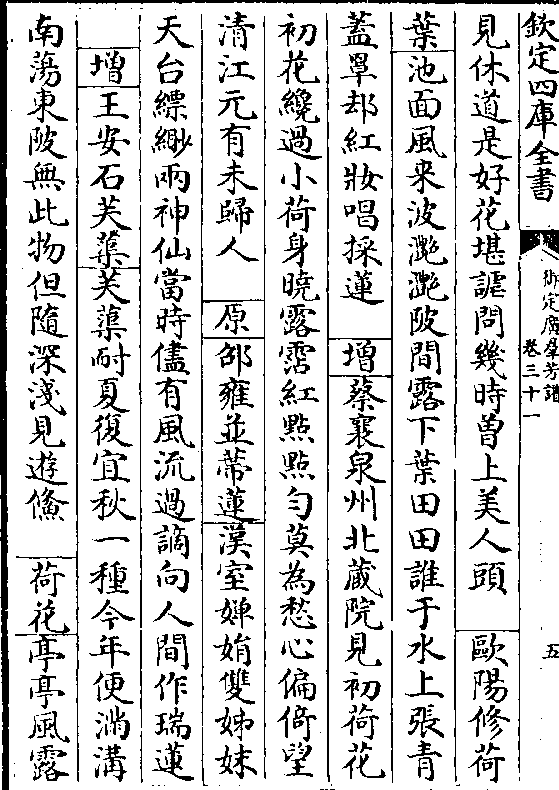 欽定四庫全書
御定廣羣芳譜
卷三十一
五
見休道是好花堪謔問幾時曽上美人頭 歐陽修荷
葉池面風来波灔灔陂間露下葉田田誰于水上張青
蓋罩却紅妝唱採蓮 增蔡襄泉州北蔵院見初荷花
初花纔過小荷身曉露霑紅點點勻莫為愁心偏倚望
清江元有未歸人 原邵雍並蒂蓮漢室嬋娟雙姊妹
天台縹緲兩神仙當時儘有風流過謫向人間作瑞蓮
增王安石芙蕖芙蕖耐夏復宜秋一種今年便滿溝
南蕩東陂無此物但隨深淺見遊鯈 荷花亭亭風露